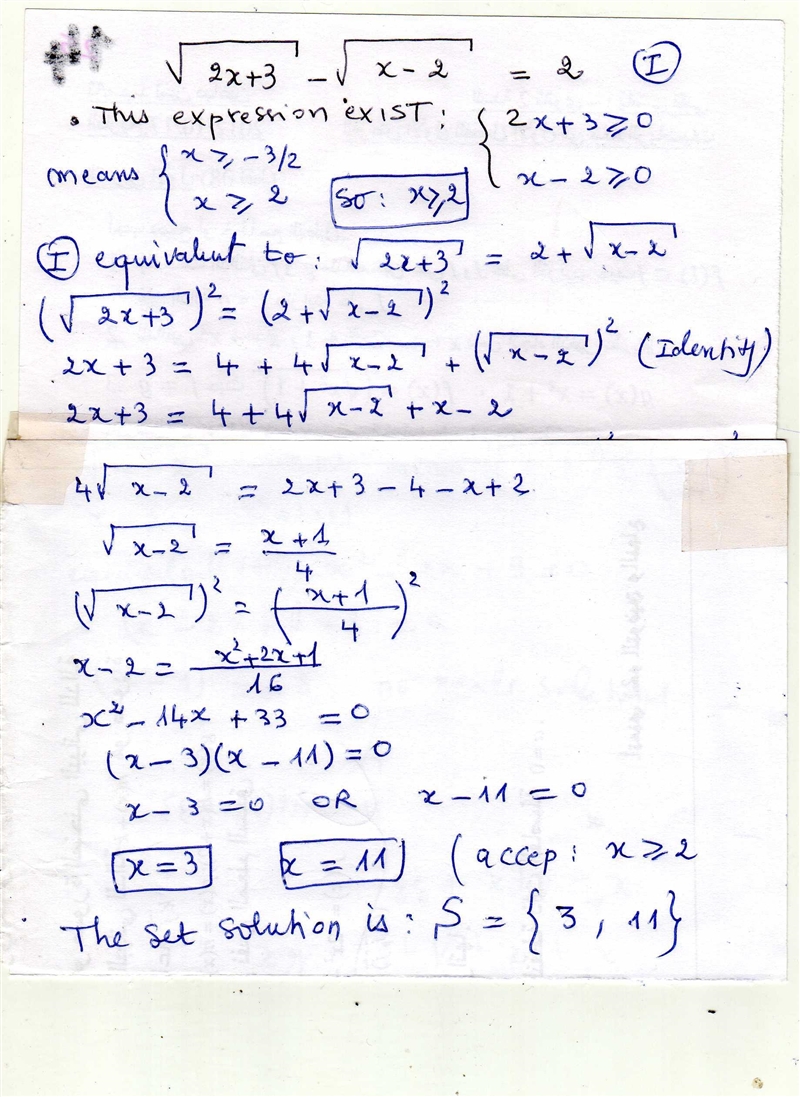 √(2x+3) - √(x-2) = 2 Ⓘ
• This expression exist: { 2x+3 ⩾ 0
x-2 ⩾ 0
means { x ⩾ -3/2
x ⩾ 2 So: x⩾2
Ⓘ equivalent to: √(2x+3) = 2+√(x-2)
(√(2x+3))² = (2+√(x-2))²
2x+3 = 4 + 4√(x-2) + (√(x-2))² (Identity)
2x+3 = 4+4√(x-2) + x-2
4√(x-2) = 2x+3-4-x+2
√(x-2) = (x+1)/4
(√(x-2))² = ((x+1)/4)²
x-2 = (x²+2x+1)/16
x²-14x+33 = 0
(x-3)(x-11)=0
x-3=0 OR x-11=0
x=3 x=11 (accep: x⩾2
The set solution is: S = {3, 11}